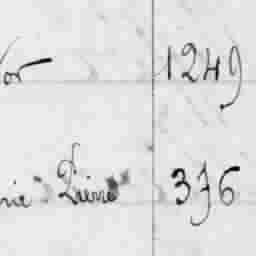 or 1249
rie Pierre 376